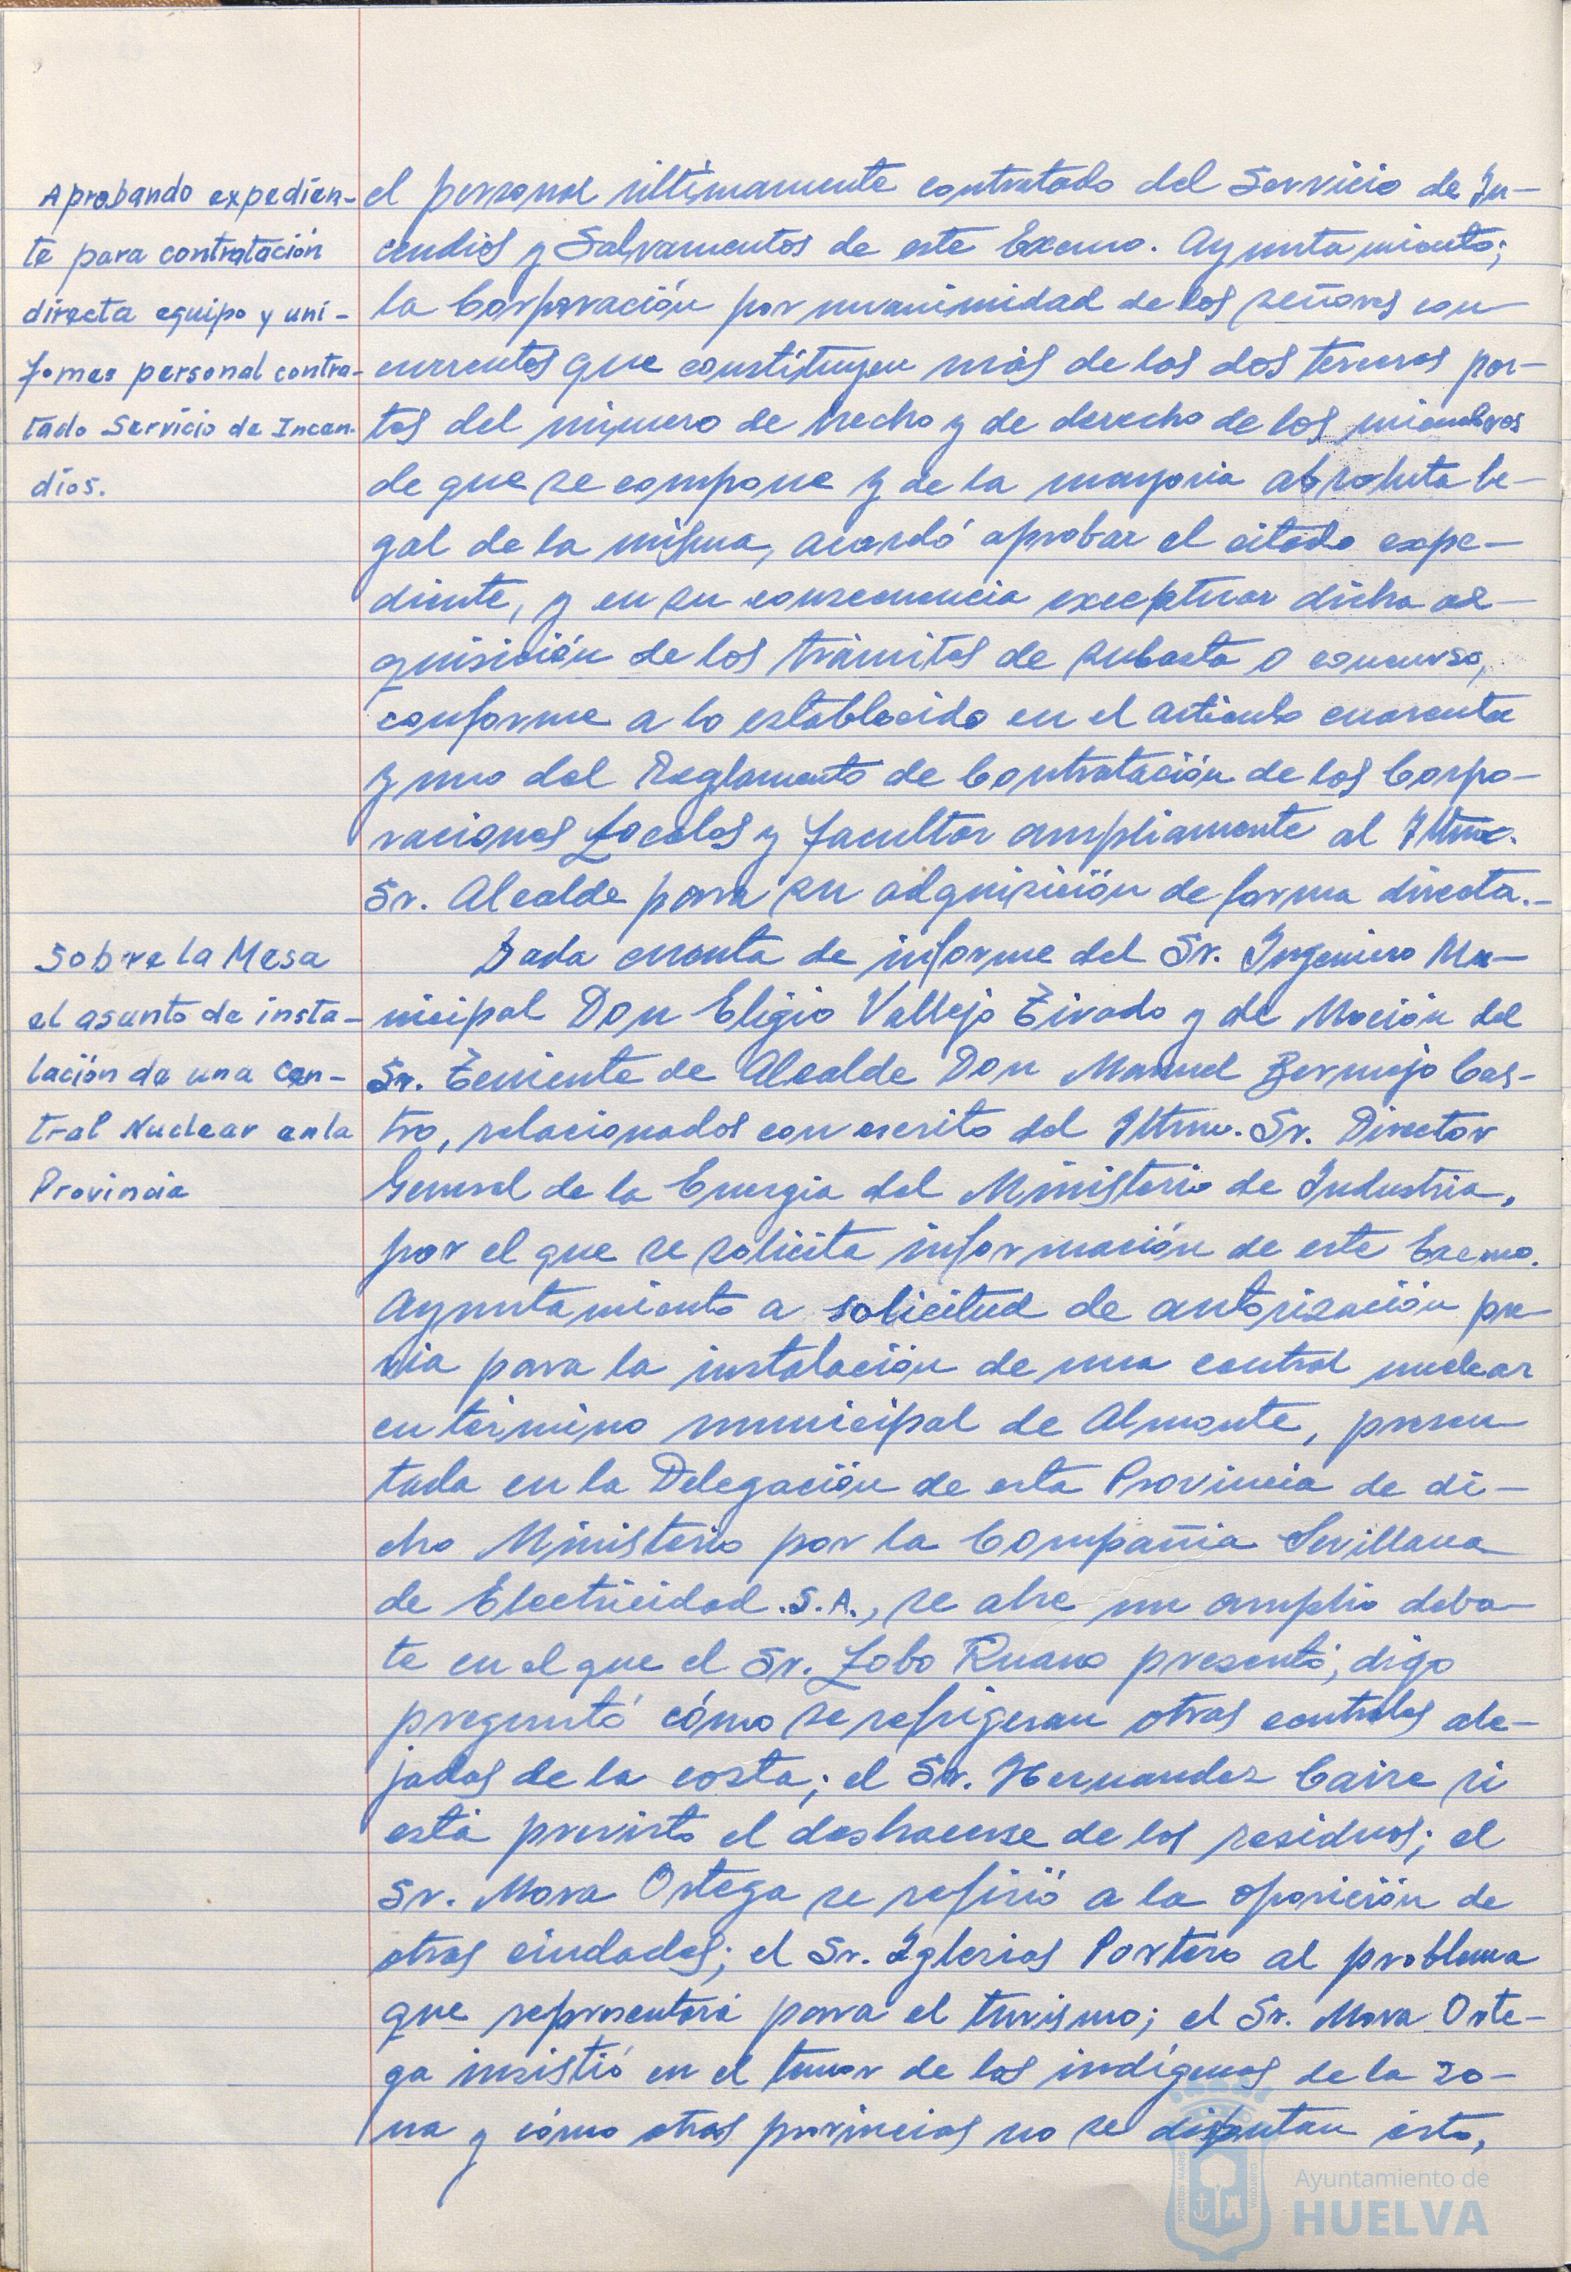 Aprobando expedien-
te para contratación
directa equipo y uni-
formes personal contra-
tado Servicio de Incen-
dios.
el personal últimamente contratado del Servicio de In-
cendios y Salvamentos de este Excmo. Ayuntamiento;
la Corporación por unanimidad de los señores con-
currentes que constituyen más de las dos terceras par-
tes del número de hecho y de derecho de los miembros
de que se compone y de la mayoria absoluta le-
gal de la misma, acordó aprobar el citado expe-
diente, y en su consecuencia exceptuar dicha ad-
quisición de los trámites de subasta o concurso,
conforme a lo establecido en el articulo cuarenta
y uno del Reglamento de Contratación de las Corpo-
raciones Locales y facultar ampliamente al Iltmo.
Sr. Alcalde para su adquisición de forma directa.-
Sobre la Mesa
el asunto de insta-
lación de una Cen-
tral Nuclear en la
Provincia
Dada cuenta de informe del Sr. Ingeniero Mu-
nicipal Don Eligio Vallejo Tirado y de Moción del
Sr. Teniente de Alcalde Don Manuel Bermejo Cas-
tro, relacionados con escrito del Iltmo. Sr. Director
General de la Energia del Ministerio de Industria,
por el que se solicita información de este Excmo.
Ayuntamiento a solicitud de autorización pre-
via para la instalación de una central nuclear
en término municipal de Almonte, presen-
tada en la Delegación de esta Provincia de di-
cho Ministerio por la Compañia Sevillana
de Electricidad S.A., se abre un amplio deba-
te en el que el Sr. Lobo Ruano presentó, digo
preguntó cómo se refrigeran otras centrales ale-
jadas de la costa; el Sr. Hernandez Caire si
está previsto el deshacerse de los residuos; el
Sr. Mora Ortega se refirió a la oposición de
otras ciudades; el Sr. Iglesias Portero al problema
que representará para el turismo; el Sr. Mora Orte-
ga insistió en el temor de los indígenas de la zo-
na y cómo otras provincias no se disputan ésto,
Ayuntamiento de
HUELVA